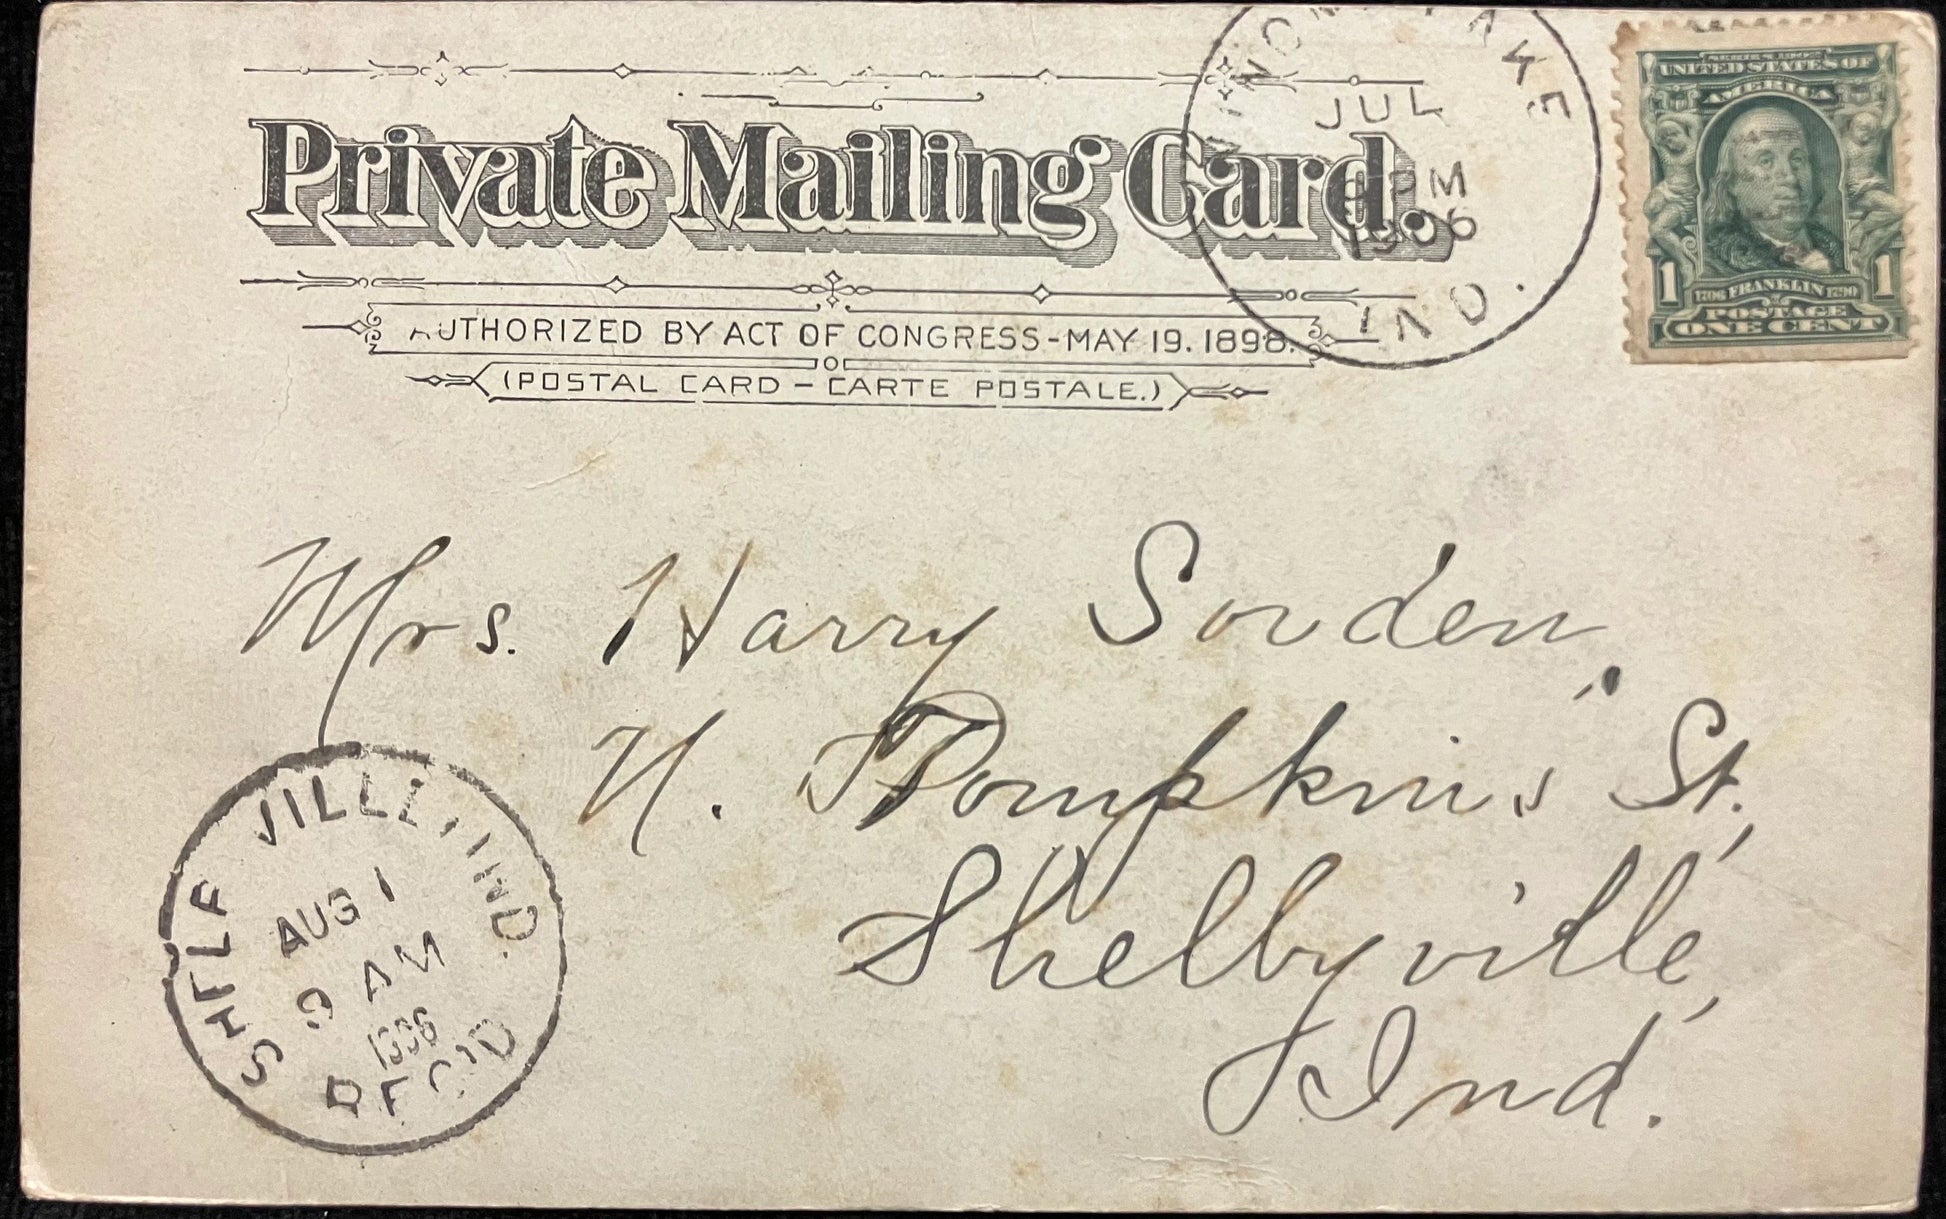 Private Mailing Card.
AUTHORIZED BY ACT OF CONGRESS-MAY 19. 1898.
(POSTAL CARD - CARTE POSTALE.)
WINONA LAKE
JUL
PM
1906
IND.
SERIES 1902
UNITED STATES OF
AMERICA
1 1
1706 FRANKLIN 1790
POSTAGE
ONE CENT
Mrs. Harry Sorden,
N. Tompkins St.,
Shelbyville,
Ind.
SHELBYVILLE, IND.
AUG 1
9 AM
1906
REC'D